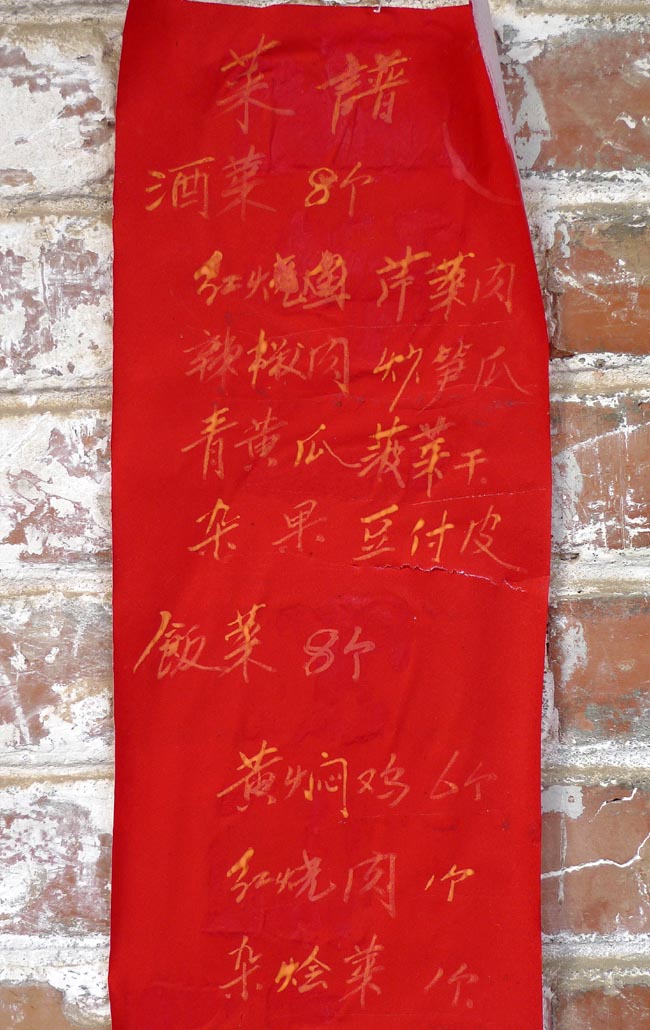 菜譜
酒菜 8个
红烧鱼 芹菜肉
辣椒肉 炒笋瓜
青黄瓜 菠菜干
杂果 豆付皮
飯菜 8个
黄焖鸡 6个
红烧肉 1个
杂烩菜 1个